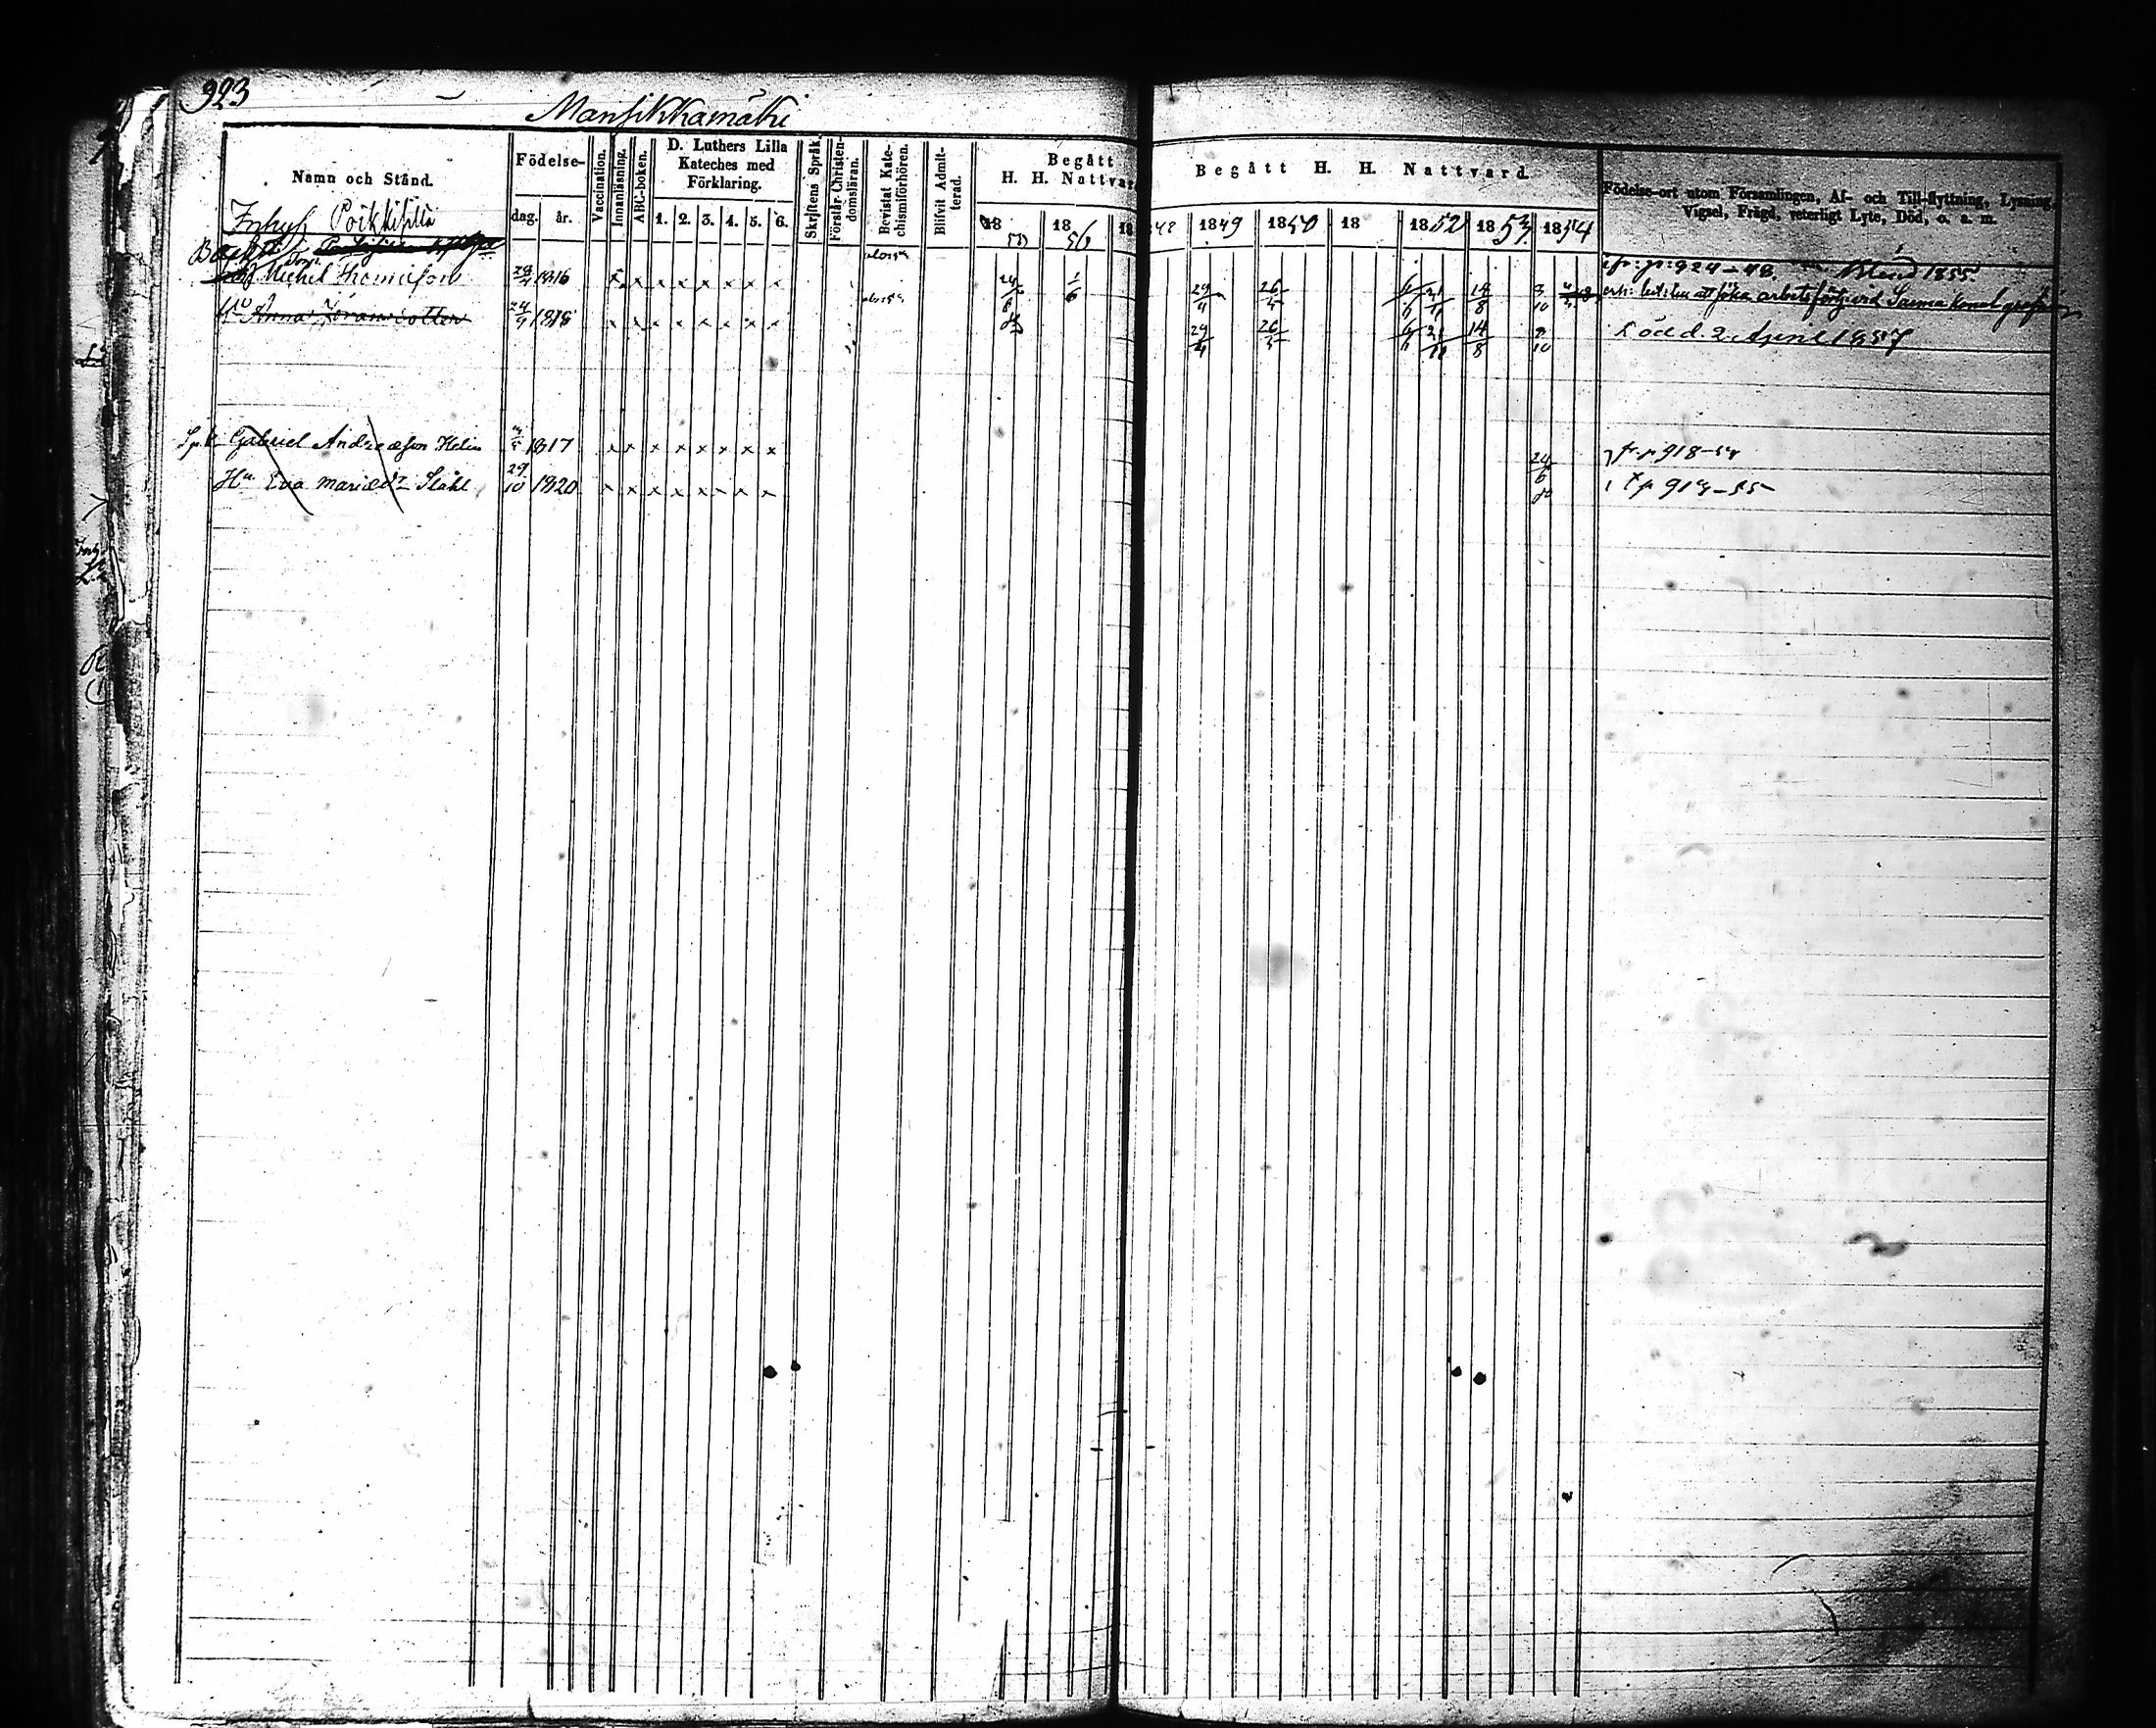 923
Mansikkamäki
Namn och Stånd.
Födelse-
dag. år.
Vaccination.
Innanläsning.
ABC-boken.
D. Luthers Lilla
Kateches med
Förklaring.
1. 2. 3. 4. 5. 6.
Skriftens Språk.
Förstår Christen-
domsläran.
Bevistat Kate-
chismiförhören.
Blifvit Admit-
terad.
Begått
H. H. Nattvar
18 18 56 18
Begått H. H. Nattvard.
48 1849 1850 18 1852 1853 1854
Födelse-ort utom Församlingen, Af- och Till-flyttning, Lysning,
Vigsel, Frägd, veterligt Lyte, Död, o. a. m.
Inhys Poikkipillä
Michel Thomasson 29/9 1816 x x x x x x x x 1/6 29/4 26/5 14/8 3/10 fr: p: 924-48. Blind 1855.
att söka arbetsförtj: vid Saima kanal gräfn
Hu Anna Jöransdotter 24/9 1818 x x x x x x x x 29/4 26/5 14/8 8/10 Död d. 2 April 1857
Gabriel Andreasson Helin 1817 x x x x x x x x fr p 918-54
Hu Eva Mariædr Ståhl 29/10 1820 x x x x x x x x 24/6 t p 919-55